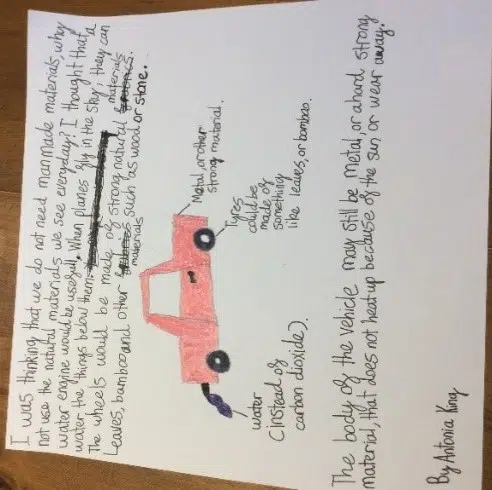 I was thinking that we do not need manmade materials, why
not use the natural materials we see everyday? I thought that a
water engine would be useful. When planes fly in the sky, they can
water the things below them.
The wheels would be made of strong natural materials
leaves, bamboo and other materials such as wood or stone.
Metal, or other
strong material.
Tyres
could be
made of
something
like leaves, or bamboo.
Water
(instead of
carbon dioxide).
The body of the vehicle may still be metal, or a hard strong
material, that does not heat up because of the sun or wear away.
By Antonia King